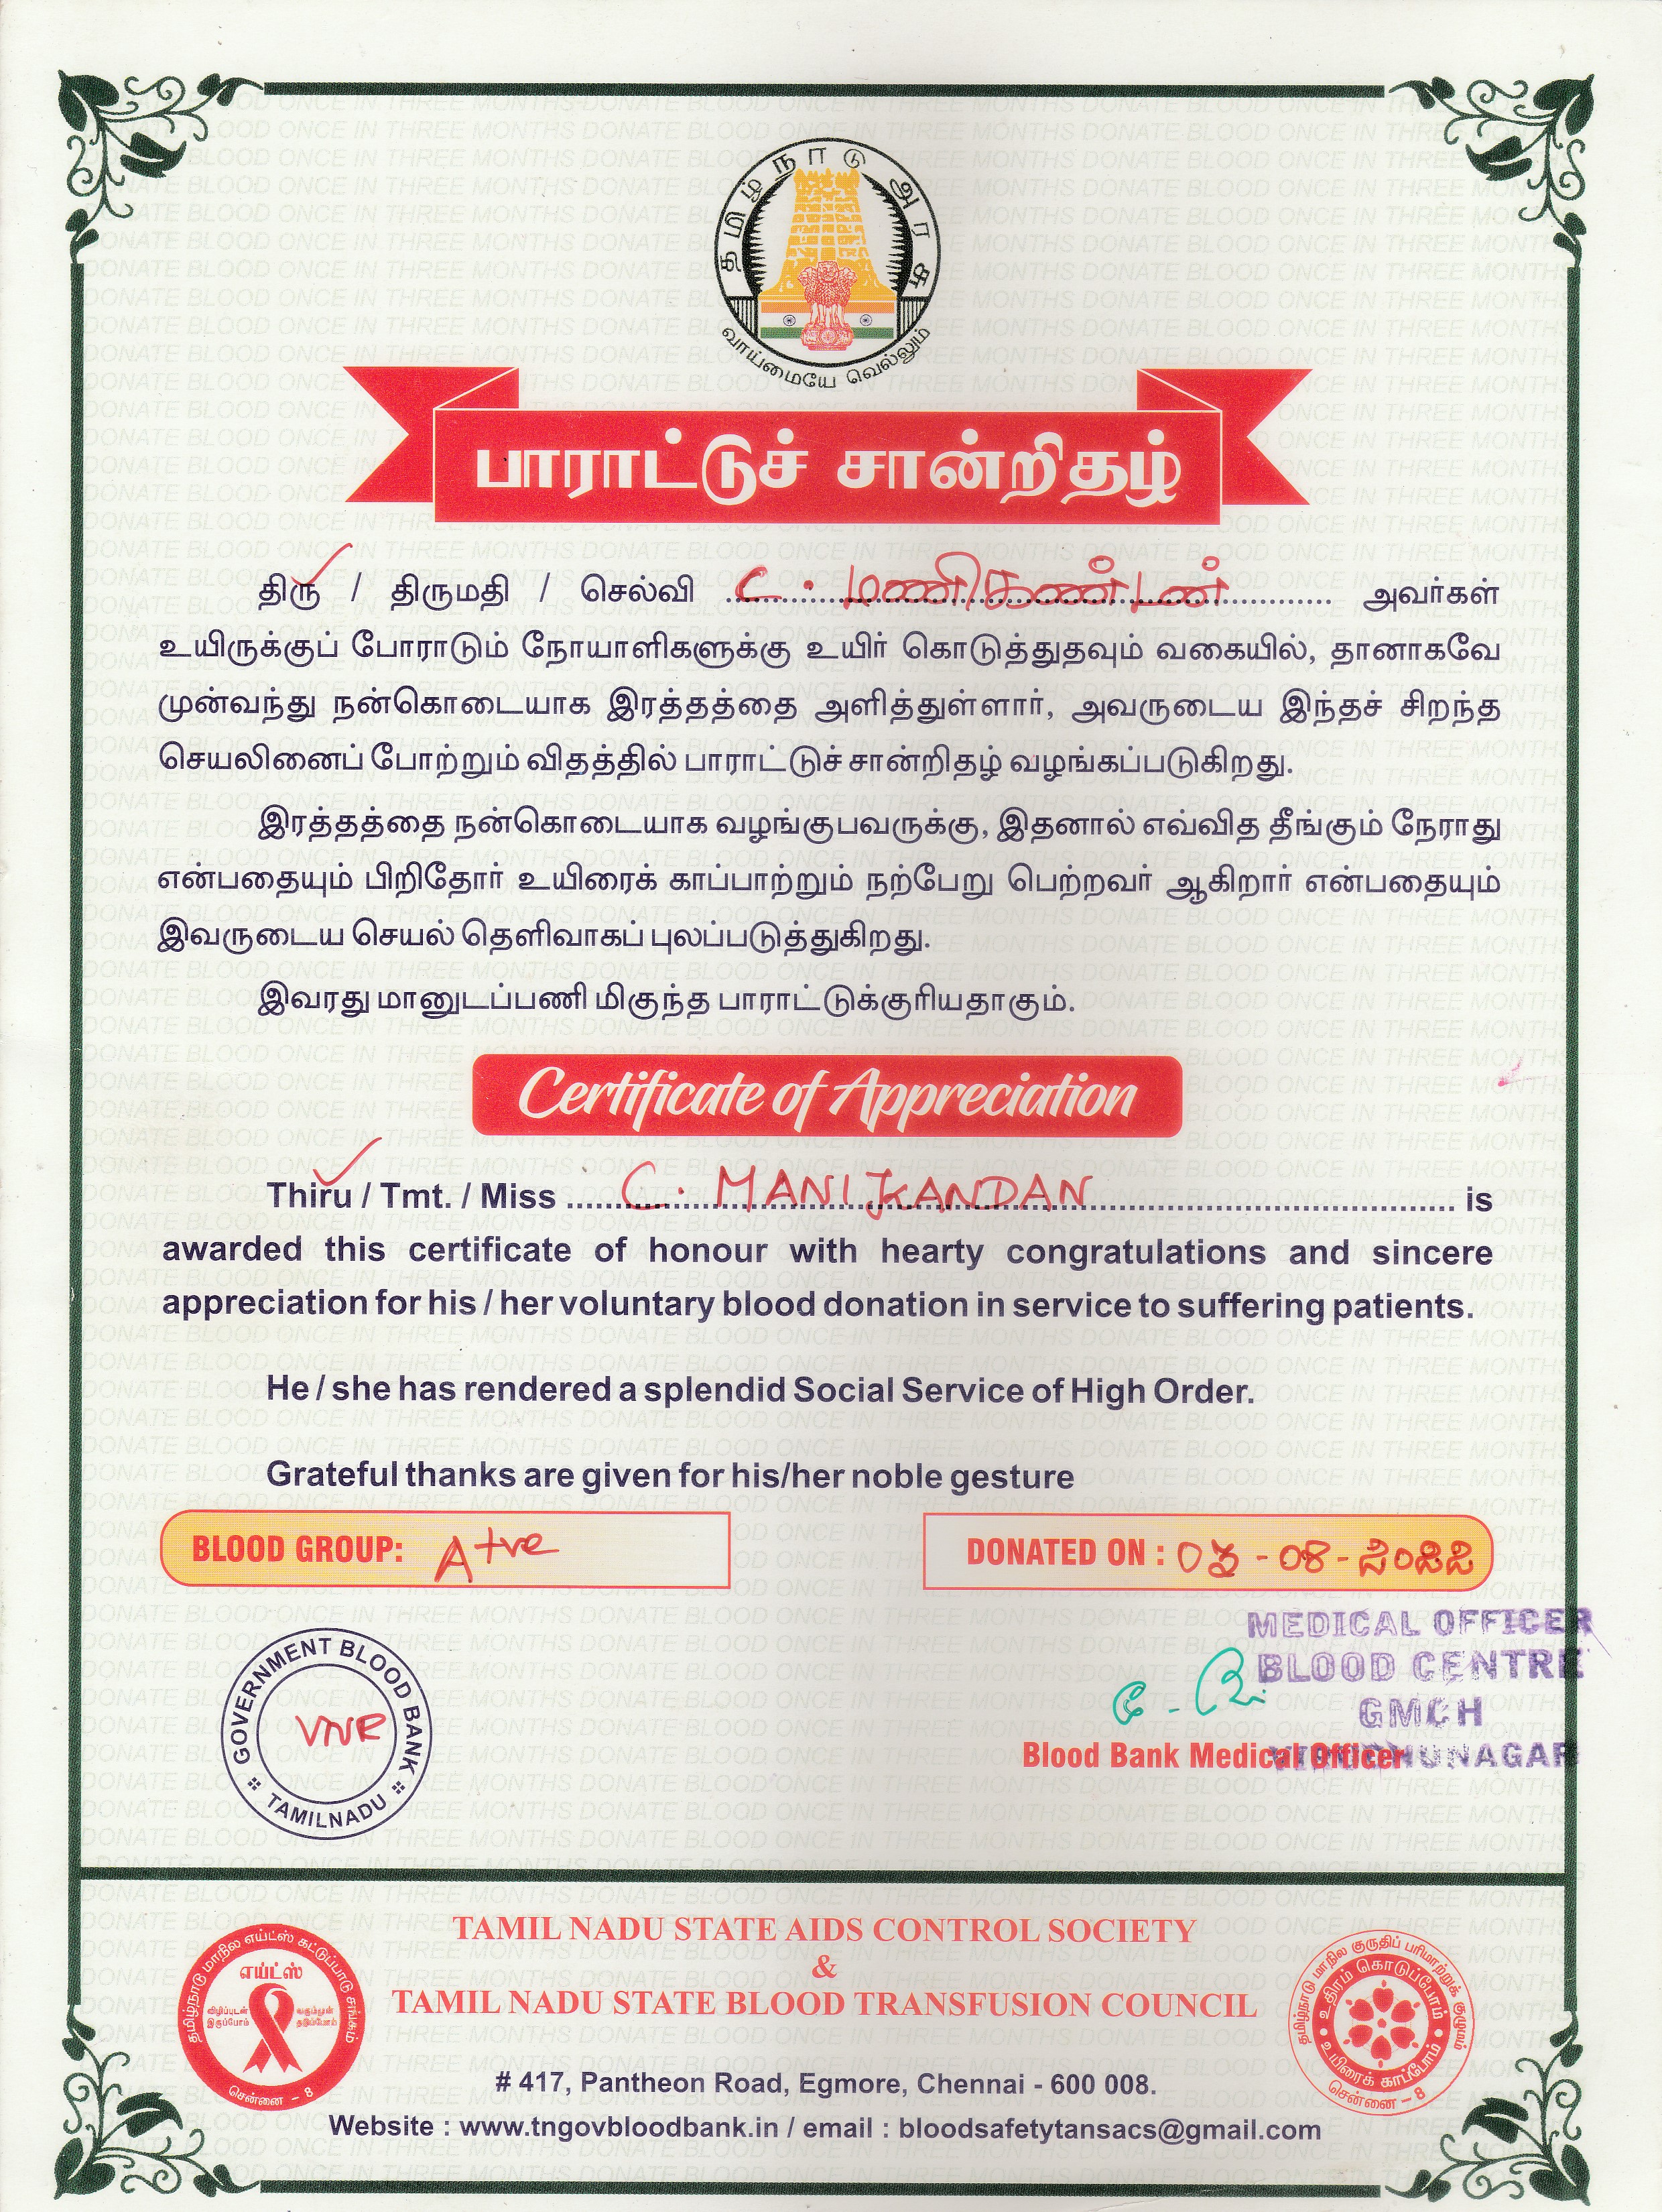 தமிழ்நாடு அரசு
வாய்மையே வெல்லும்
பாராட்டுச் சான்றிதழ்
திரு / திருமதி / செல்வி C. மணிகண்டன் அவர்கள்
உயிருக்குப் போராடும் நோயாளிகளுக்கு உயிர் கொடுத்துதவும் வகையில், தானாகவே
முன்வந்து நன்கொடையாக இரத்தத்தை அளித்துள்ளார், அவருடைய இந்தச் சிறந்த
செயலினைப் போற்றும் விதத்தில் பாராட்டுச் சான்றிதழ் வழங்கப்படுகிறது.
இரத்தத்தை நன்கொடையாக வழங்குபவருக்கு, இதனால் எவ்வித தீங்கும் நேராது
என்பதையும் பிறிதோர் உயிரைக் காப்பாற்றும் நற்பேறு பெற்றவர் ஆகிறார் என்பதையும்
இவருடைய செயல் தெளிவாகப் புலப்படுத்துகிறது.
இவரது மானுடப்பணி மிகுந்த பாராட்டுக்குரியதாகும்.
Certificate of Appreciation
Thiru / Tmt. / Miss C. MANIKANDAN is
awarded this certificate of honour with hearty congratulations and sincere
appreciation for his / her voluntary blood donation in service to suffering patients.
He / she has rendered a splendid Social Service of High Order.
Grateful thanks are given for his/her noble gesture
BLOOD GROUP: A+ve
DONATED ON :
MEDICAL OFFICER
BLOOD CENTRE
GMCH
VIRUDHUNAGAR
Blood Bank Medical Officer
GOVERNMENT BLOOD BANK
VNR
TAMILNADU
TAMIL NADU STATE AIDS CONTROL SOCIETY
&
TAMIL NADU STATE BLOOD TRANSFUSION COUNCIL
# 417, Pantheon Road, Egmore, Chennai - 600 008.
Website : www.tngovbloodbank.in / email : bloodsafetytansacs@gmail.com
தமிழ்நாடு மாநில எய்ட்ஸ் கட்டுப்பாடு சங்கம்
எய்ட்ஸ்
விழிப்புடன் இருப்போம்
வருமுன் தடுப்போம்
சென்னை - 8
தமிழ்நாடு மாநில குருதிப் பரிமாற்றுக் குழுமம்
உதிரம் கொடுப்போம்
உயிரைக் காப்போம்
சென்னை - 8
DONATE BLOOD ONCE IN THREE MONTHS